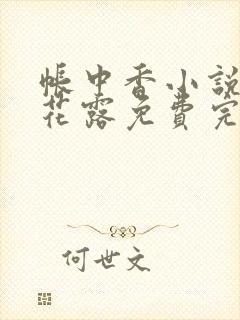 帳中香小說
花露免費完
何世文